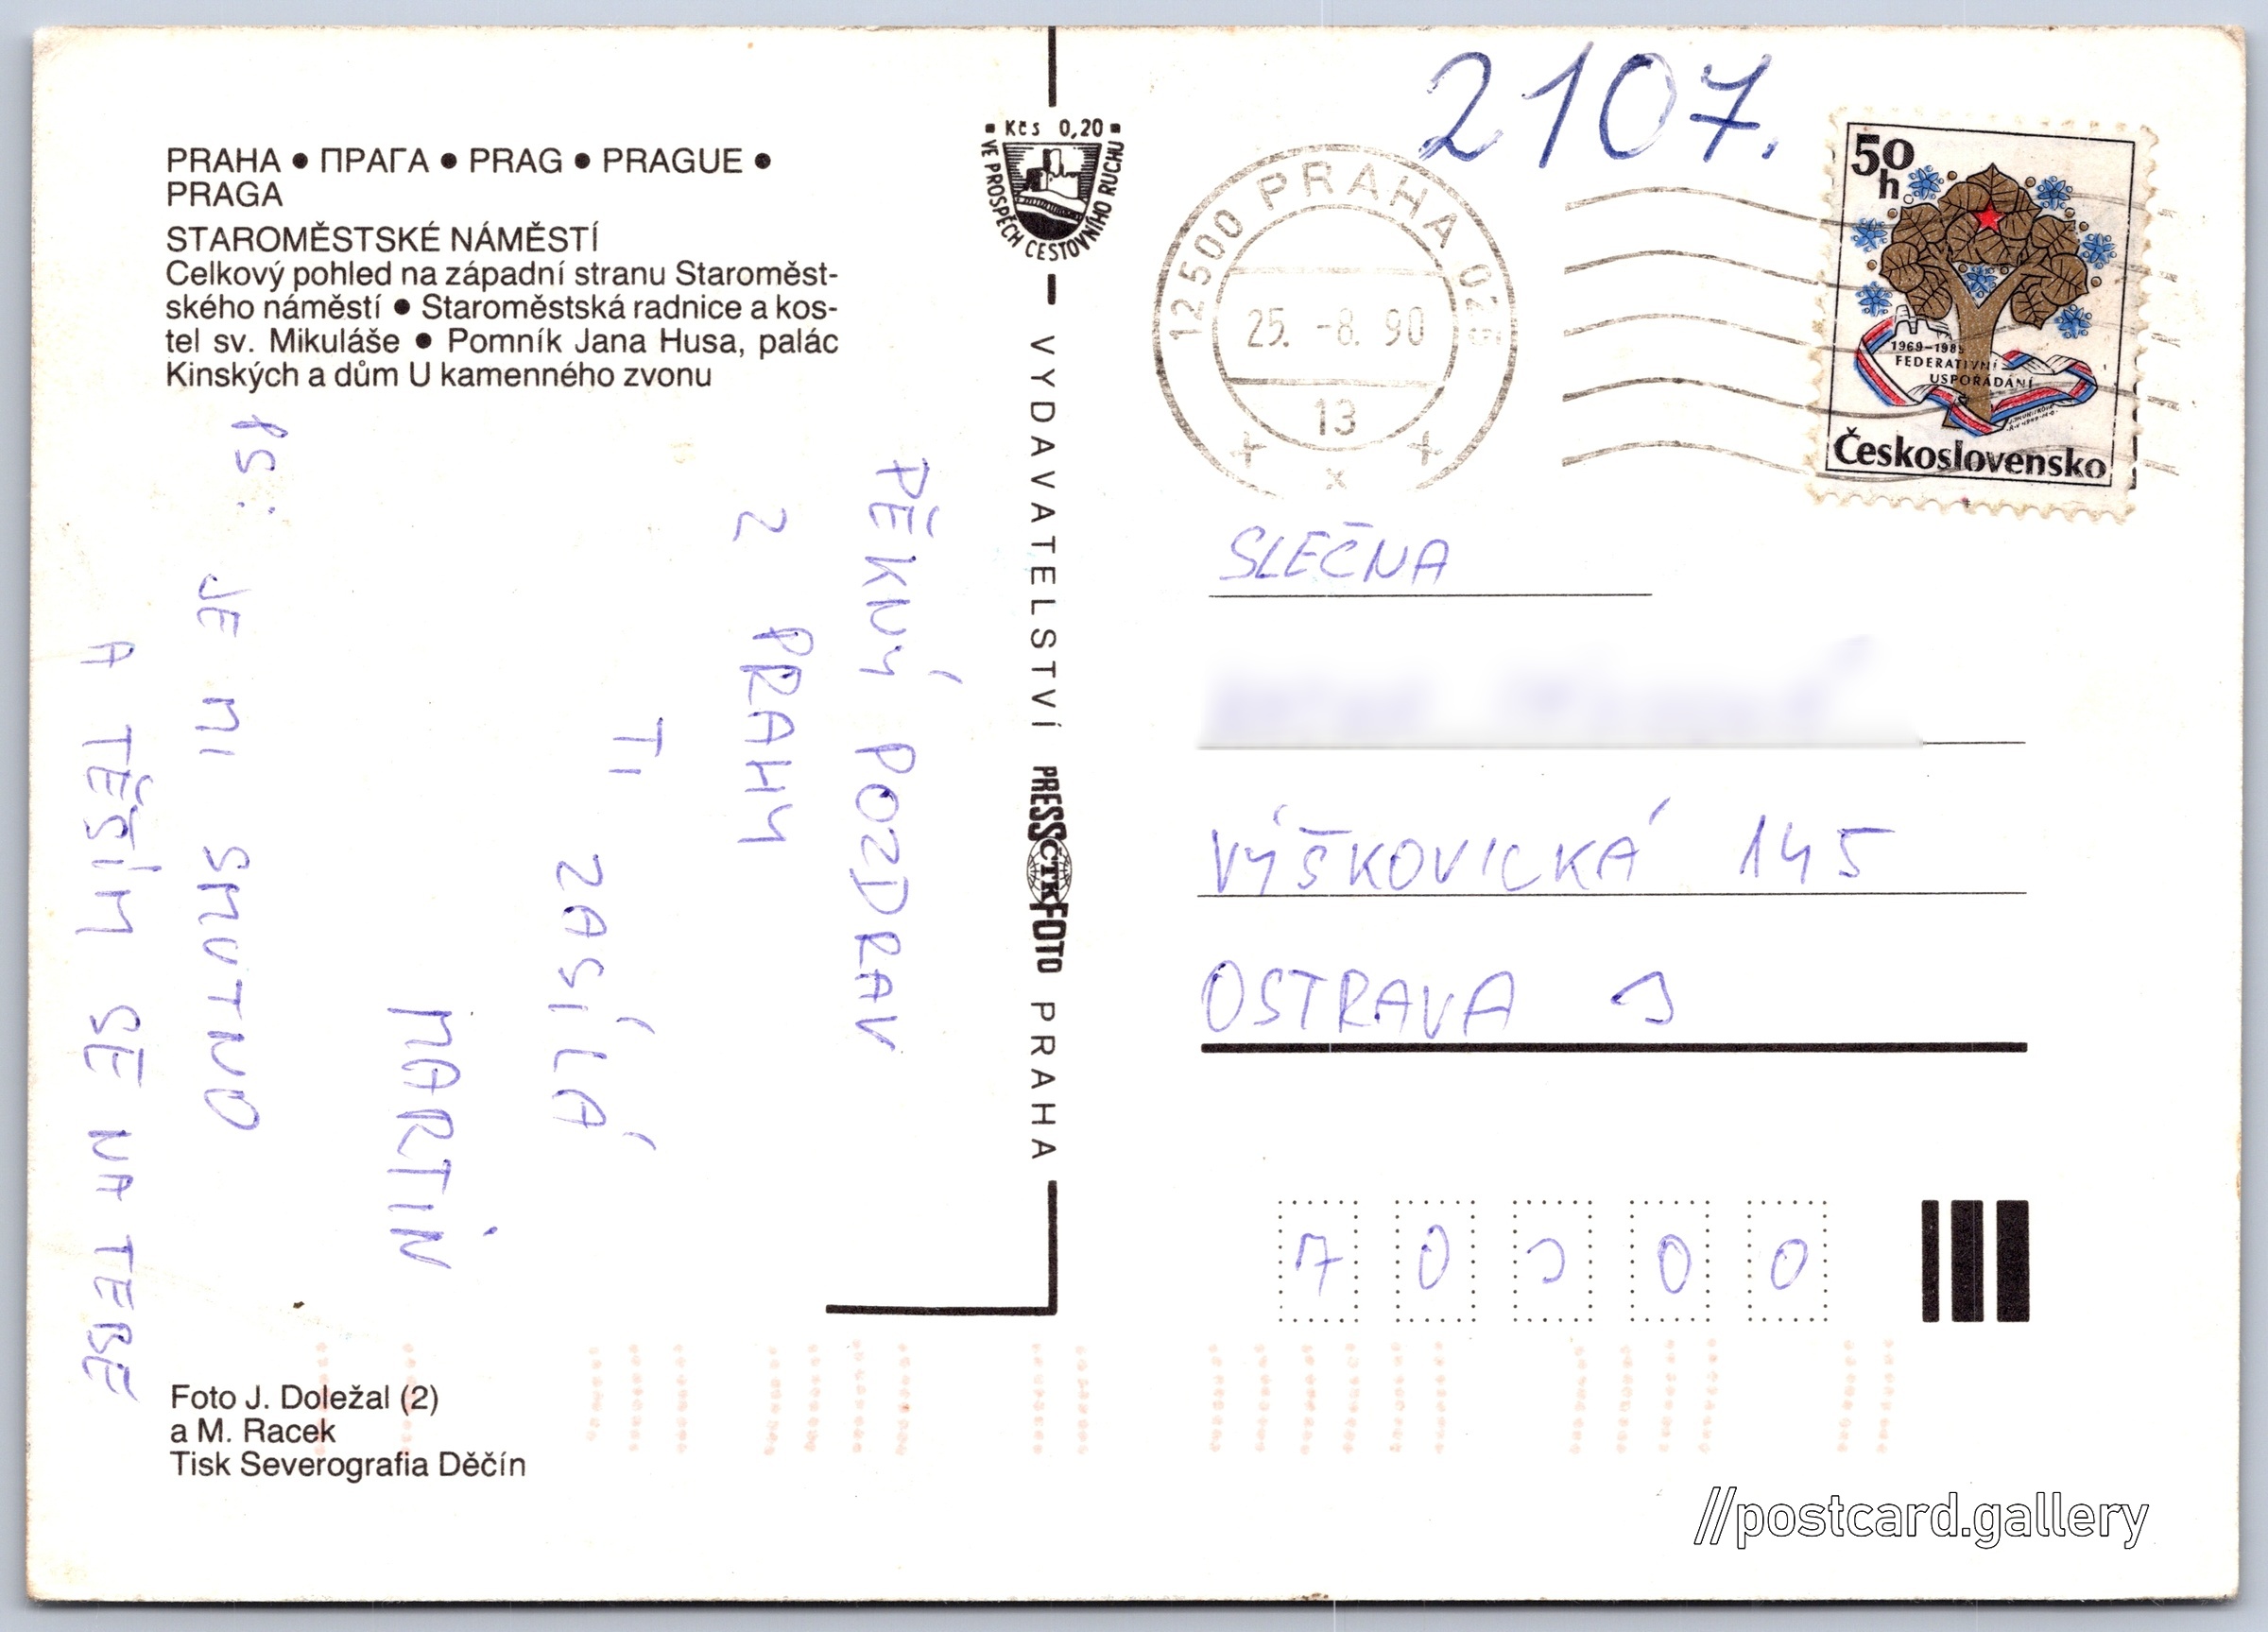 PRAHA ● ПРАГА ● PRAG ● PRAGUE ●
PRAGA
STAROMĚSTSKÉ NÁMĚSTÍ
Celkový pohled na západní stranu Staroměst-
ského náměstí ● Staroměstská radnice a kos-
tel sv. Mikuláše ● Pomník Jana Husa, palác
Kinských a dům U kamenného zvonu
PĚKNÝ POZDRAV
Z PRAHY
TI
ZASÍLÁ
MARTIN
PS: JE MI SMUTNO
A TĚŠÍM SE NA TEBE
Foto J. Doležal (2)
a M. Racek
Tisk Severografia Děčín
Kčs 0,20
VE PROSPĚCH CESTOVNÍHO RUCHU
VYDAVATELSTVÍ PRESSFOTO PRAHA
ČTK
2107.
12500 PRAHA 025
25. -8. 90
13
50
h
1969-1989
FEDERATIVNÍ
USPOŘÁDÁNÍ
Československo
SLEČNA
VÝŠKOVICKÁ 145
OSTRAVA
70 00
//postcard.gallery